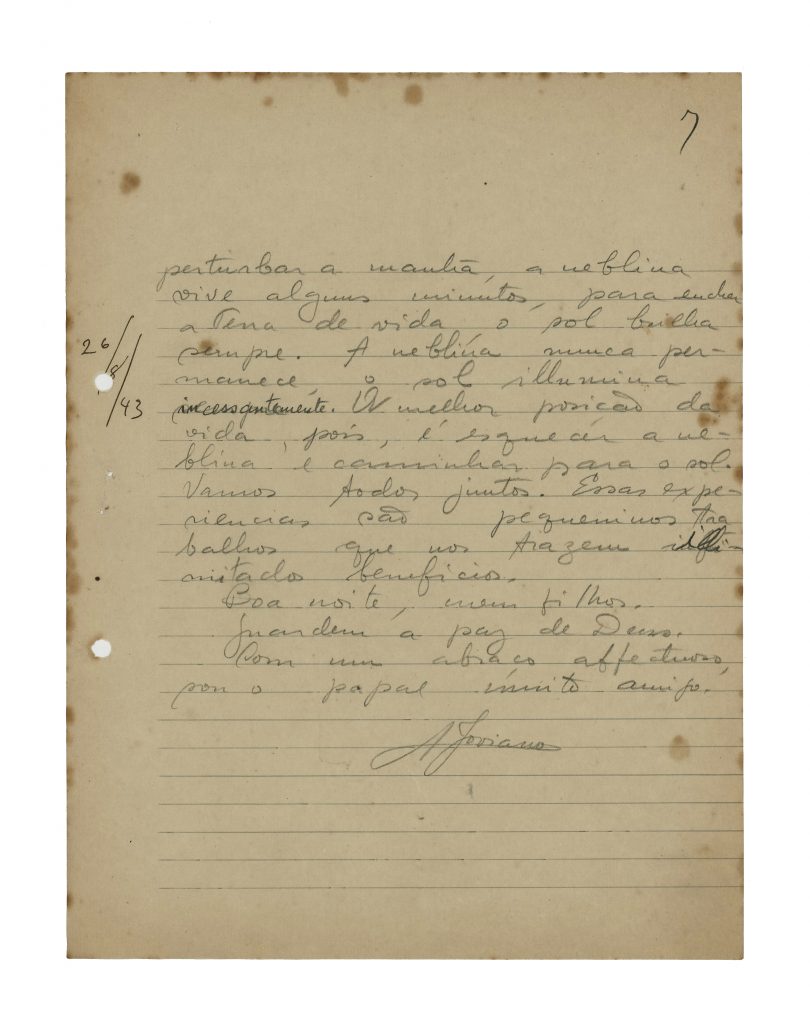 7
perturbar a manhã, a neblina
vive alguns minutos, para encher
a Terra de vida, o sol brilha
sempre. A neblina nunca per-
manece, o sol illumina
incessantemente. A melhor posição da
vida, pois, é esquecer a ne-
blina e caminhar para o sol.
Vamos todos juntos. Essas expe-
riencias são pequeninos tra
balhos que nos trazem illi-
mitados beneficios.
Boa noite, meus filhos.
Guardem a paz de Deus.
Com um abraço affectuoso,
sou o papae muito amigo.
A Joviano
26/8/43